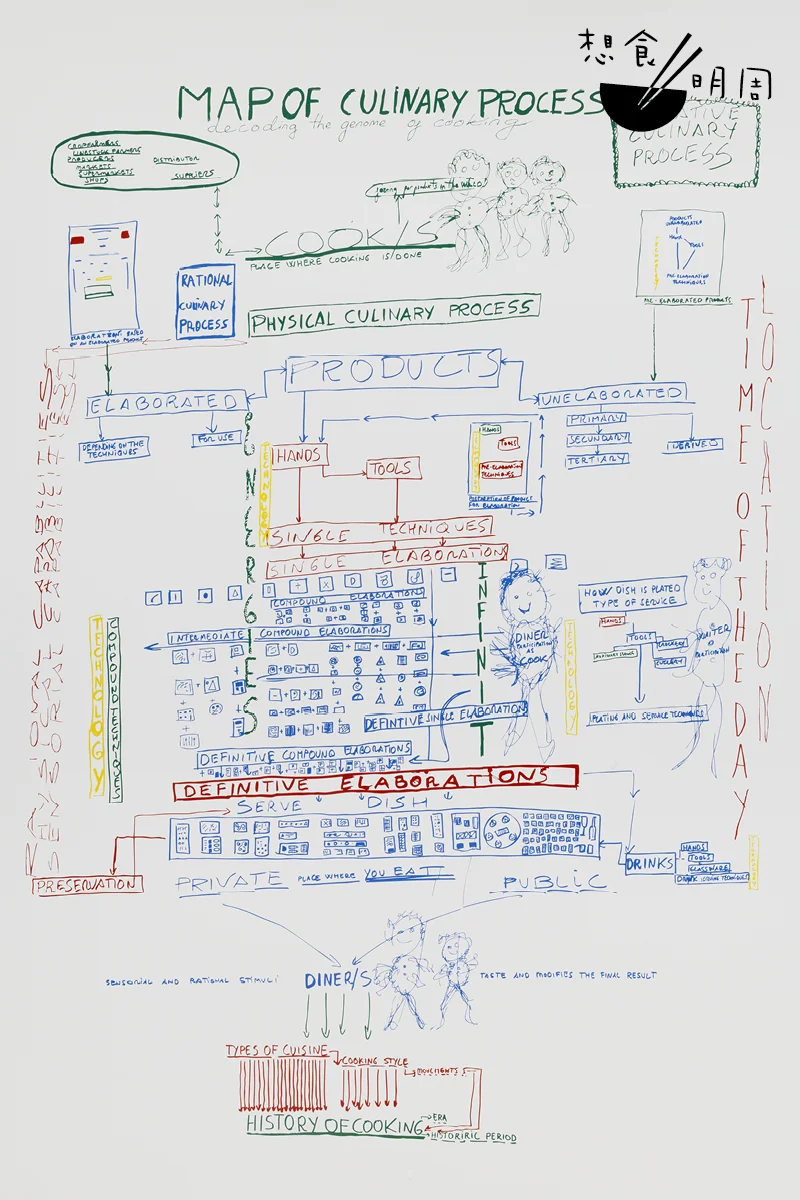 想食
明周
MAP OF CULINARY PROCESS
decoding the genome of cooking
CULINARY
PROCESS
PRODUCERS
MARKETS
SUPERMARKETS
SHOPS
DISTRIBUTOR
SUPPLIERS
COOK/S
PLACE WHERE COOKING IS DONE
RATIONAL
CULINARY
PROCESS
PHYSICAL CULINARY PROCESS
HANDS
TOOLS
PRE-ELABORATION
TECHNIQUES
PRE-ELABORATED PRODUCTS
PRODUCTS
ELABORATED
UNELABORATED
DEPENDING ON THE
TECHNIQUES
FOR USE
PRIMARY
SECUNDARY
TERTIARY
DERIVED
HANDS
TOOLS
TECHNOLOGY
HANDS
TOOLS
PRE-ELABORATION
TECHNIQUES
PREPARATION OF PRODUCT
FOR ELABORATION
SINGLE TECHNIQUES
SINGLE ELABORATIONS
SINERGIES
INFINIT
LOCATION
TIME OF THE DAY
COMPOUND ELABORATIONS
INTERMEDIATE COMPOUND ELABORATIONS
TECHNOLOGY
COMPOUND TECHNIQUES
DINER
PARTICIPATION
AS
COOK
TECHNOLOGY
HOW DISH IS PLATED
TYPE OF SERVICE
HANDS
TOOLS
WAITER
PARTICIPATION
PLATING AND SERVICE TECHNIQUES
DEFINTIVE SINGLE ELABORATION
DEFINITIVE COMPOUND ELABORATIONS
DEFINITIVE ELABORATIONS
SERVE DISH
PRESERVATION
DRINKS
HANDS
TOOLS
GLASSWARE
PRIVATE PLACE WHERE YOU EAT PUBLIC
SENSORIAL AND RATIONAL STIMULI DINER/S TASTE AND MODIFIES THE FINAL RESULT
TYPES OF CUISINE
COOKING STYLE
MOVEMENTS
HISTORY OF COOKING
ERA
HISTORIRIC PERIOD